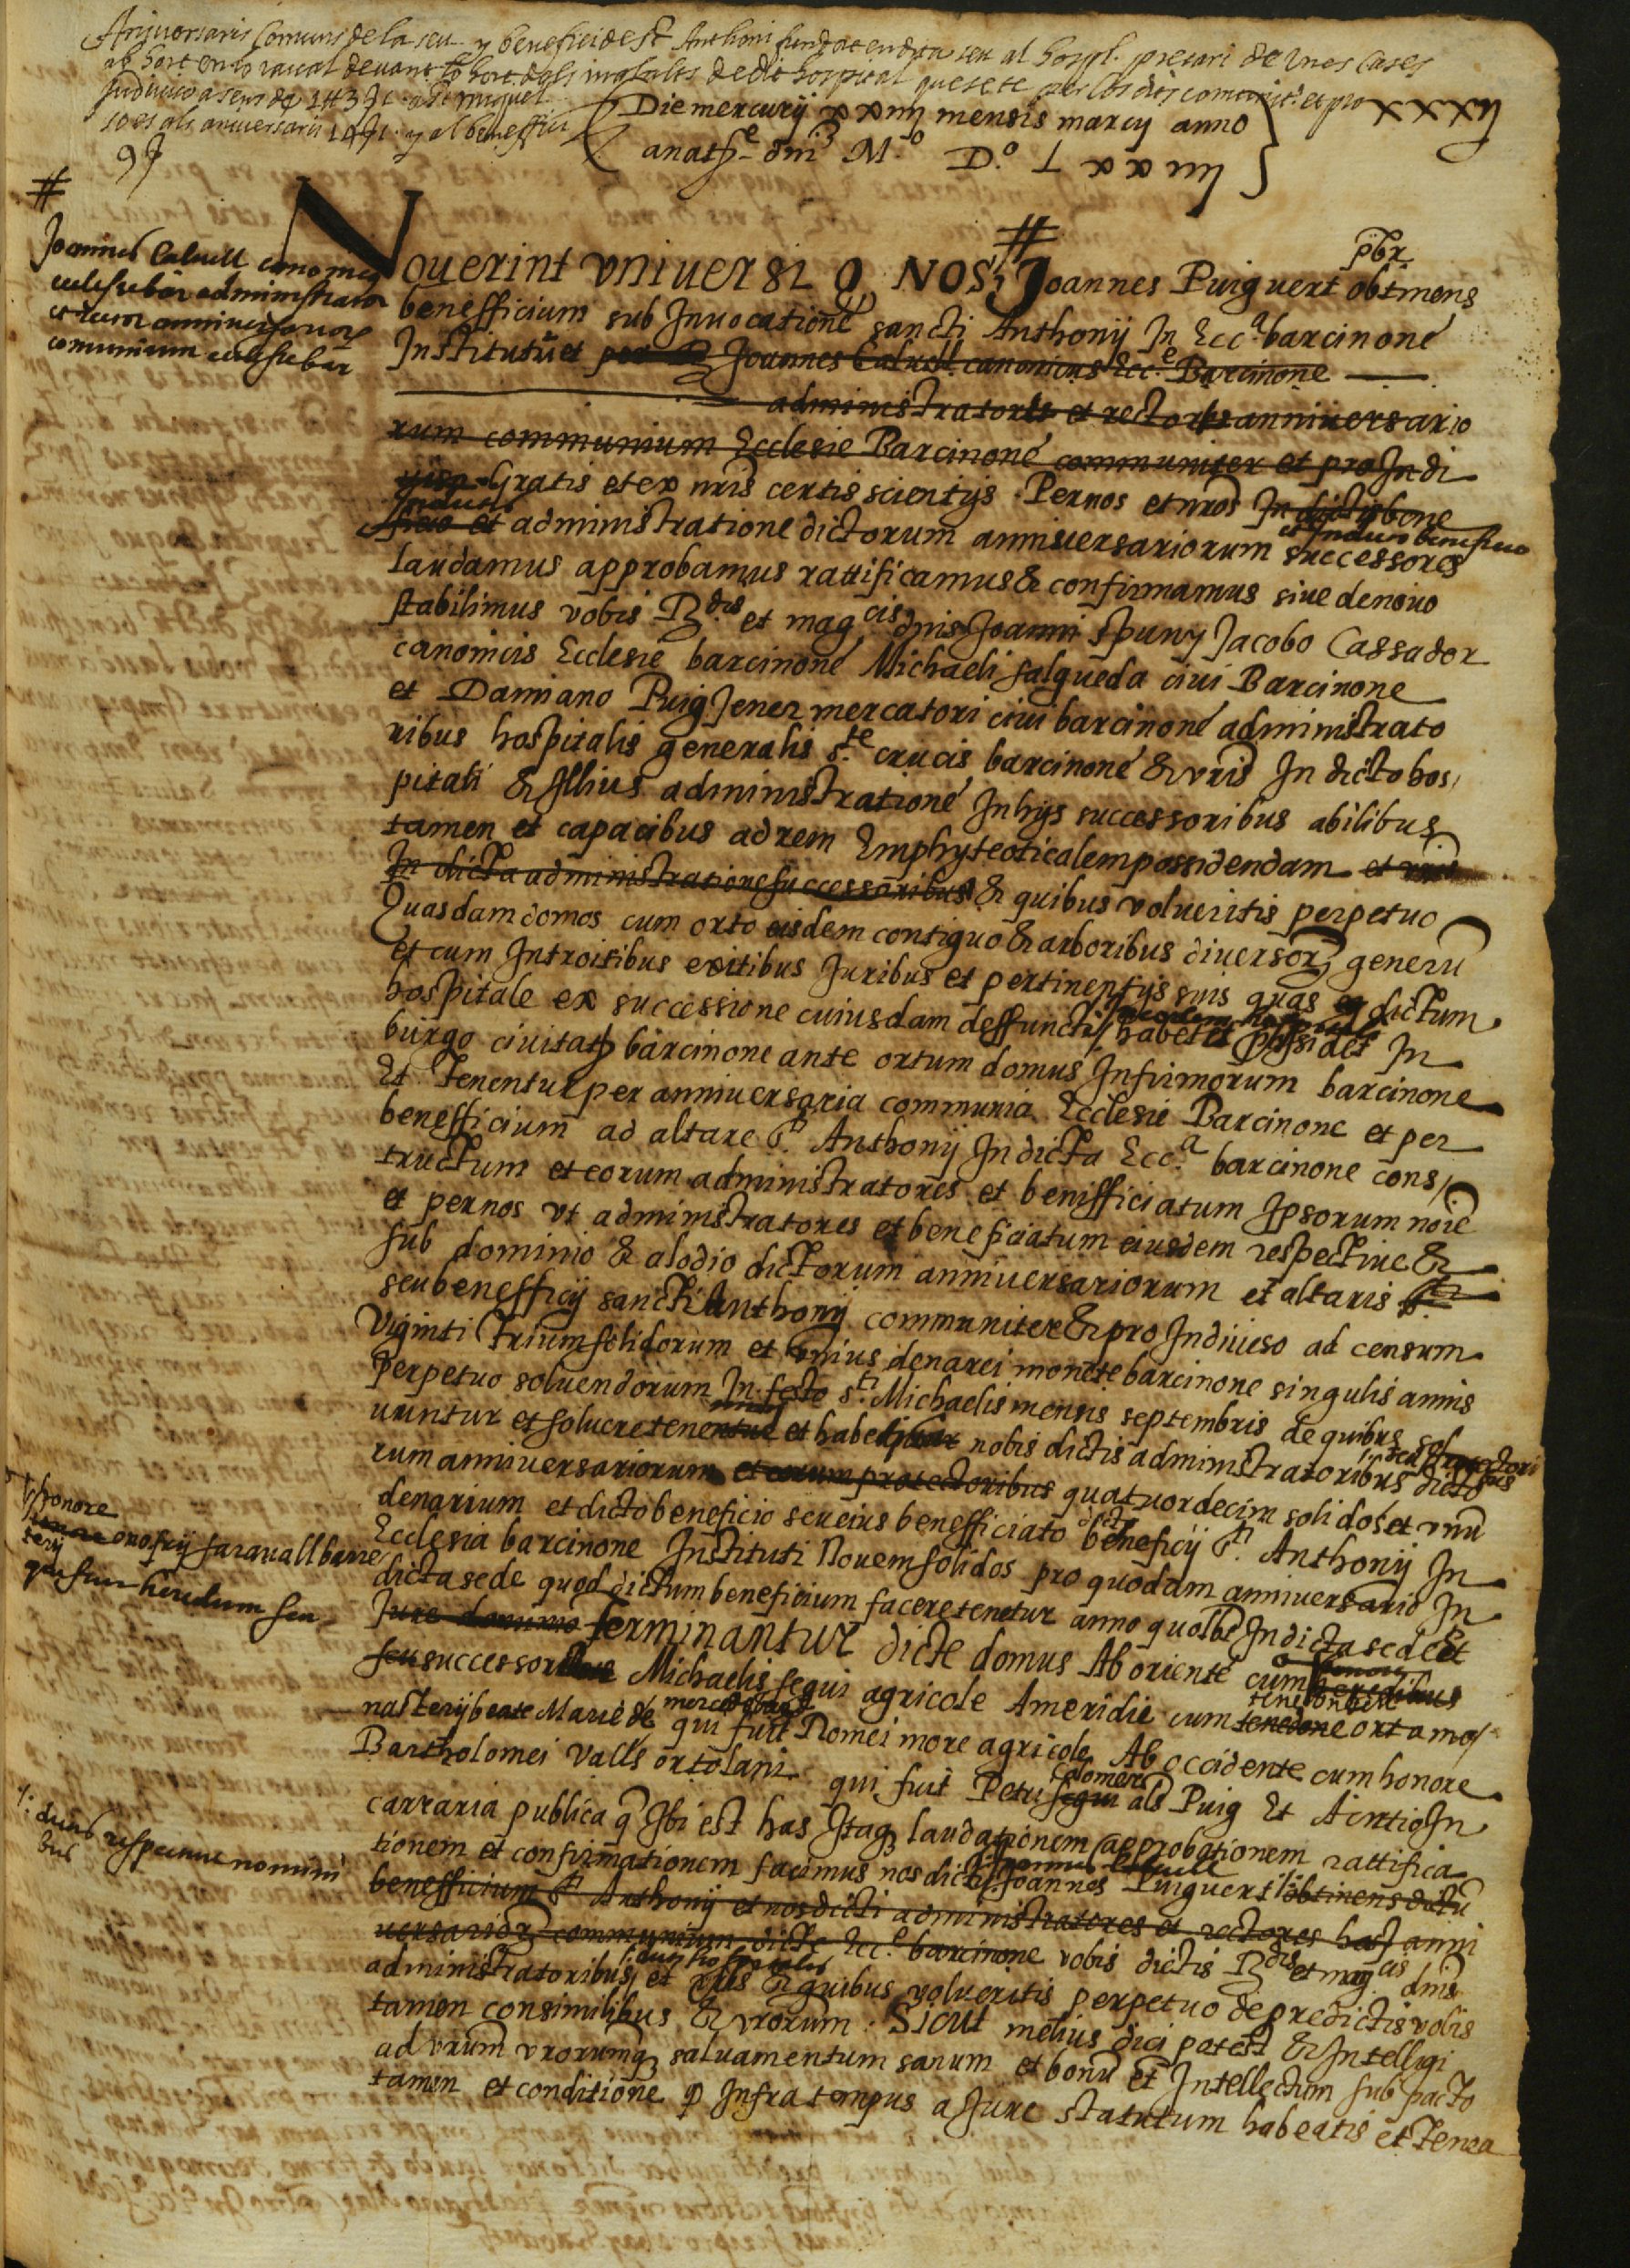 Aniversaris comuns de la seu y benefici de St Anthoni fundat en dita seu al hospl. precari de unes cases
ab hort en lo raval devant lo hort dels malalts de dit hospital que se te per los dits comuns et pro
indiviso a cens de 1 # 3 ʄ 1 a St miquel
so es als aniversaris 14 ʄ 1 y al beneffici
9 ʄ
Die mercurij xxiiij mensis marcij anno
lxxxx
anatte dni M.o D.o L xxiiij
#
Joannes Calvell canonicus
ecclesie bar administrator
et rector anniversariorum
comunium ecclesie bar
Noverint universi q NOS # Joannes Puigvert pbr obtinens
benefficium sub Invocatione sancti Anthonij In Ecc.a barcinone
Institutu et per Joannes Calvell canonicus Ecc.e Barcinone
administratores et rectores anniversario
rum communium Ecclesie Barcinone communiter et pro Indi
viso Gratis et ex nris certis scientijs Per nos et nros In dictis bene
ficio et In dicta administratione dictorum anniversariorum et In dicto beneficio successores
laudamus approbamus rattificamus & confirmamus sive de novo
stabilimus vobis R.dis et mag.cis dnis Joanni Spuny Jacobo Cassador
canonicis Ecclesie barcinone Michaeli salgueda civi Barcinone
et Damiano Puig Jener mercatori civi barcinone administrato
ribus hospitalis generalis s.te crucis barcinone & vris In dicto hos
pitali & Illius administratione In hijs successoribus abilibus
tamen et capacibus ad rem Emphyteoticalem possidendam et vris
In dicta administratione successoribus & quibus volueritis perpetuo
Quasdam domos cum orto eisdem contiguo & arboribus diversor generu
et cum Introitibus exitibus Juribus et pertinentijs suis quas dictum
hospitale ex successione cuiusdam deffuncti habet et possidet In
burgo civitatis barcinone ante ortum domus Infirmorum barcinone
Et Tenentur per anniversaria communia Ecclesie Barcinone et per
benefficium ad altare S.ti Anthonij In dicta Ecc.a barcinone cons
tructum et eorum administratores et benifficiatum Ipsorum noie
et per nos vt administratores et beneficiatum eiusdem respective &
sub dominio & alodio dictorum anniversariorum et altaris
seu benefficij sancti Anthonij communiter & pro Indiviso ad censum
Viginti Trium solidorum et unius denarei monete barcinone singulis annis
perpetuo solvendorum In festo s.ti Michaelis mensis septembris de quibus sol
vuntur et solvere tenentur et habe nobis dictis administratoribus dicto
rum anniversariorum et eorum protectoribus quatuordecim solidos et vnu
denarium et dicto beneficio seu eius benefficiato dicti beneficij S.ti Anthonij In
Ecclesia barcinone Instituti Novem solidos pro quodam anniversario In
dicta sede quod dictum beneficium facere tenetur anno quolbet In dicta sede Et
Jure dominio Terminantur dicte domus Ab oriente cum honore heredibus
seu successoribus Michaelis segui agricole A meridie cum tenedone orta mo
nasterij beate Marie de mercede bar qui fuit Romei more agricole Ab occidente cum honore
Bartholomei Valls ortolani qui fuit Petri segui colomer als Puig Et A circio In
carraria publica q Ibi est has Itaq laudationem approbationem rattifica
tionem et confirmationem facimus nos dicti Joannes Puigvert obtinens dictu
benefficium S.ti Anthonij et nos dicti administratores et rectores anni
versarior communium dicte Ecc.e barcinone vobis dictis R.dis et mag.cis dnis
administratoribus dicti hospitalis et vris & quibus volueritis perpetuo de predictis vobis
tamen consimilibus & vrorum Sicut melius dici potest & Intelligi
ad vrum vrorumq salvamentum sanum et bonu et Intellectum sub pacto
tamen et conditione q Infra tempus a Jure statutum habeatis et Tenea
honore
onofrij saravall barre
terij
qui fuit heredum seu
duabus respective nomini
bus